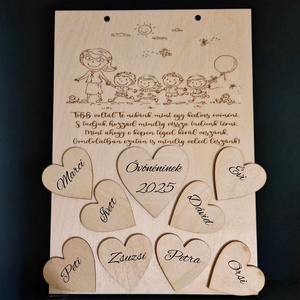 Több voltál Te nekünk, mint egy kedves óvónéni,
S tudjuk, hozzád mindig vissza tudunk térni.
Mint ahogy a képen Téged körül veszünk,
Gondolatban ezután is mindig veled leszünk!
Marci
Óvónéninek
2025
Évi
Ivett
Dávid
Peti
Zsuzsi
Petra
Orsi